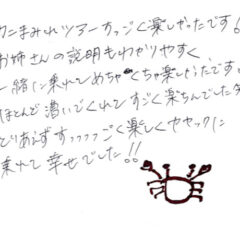 カニまみれツアーすっごく楽しかったです!
お姉さんの説明もわかりやすく
一緒に乗れてめちゃくちゃ楽しかったです。
ほとんど漕いでくれてすごく楽ちんでした
とりあえずすっっっっごく楽しくカヤックに
乗れて幸せでした!!